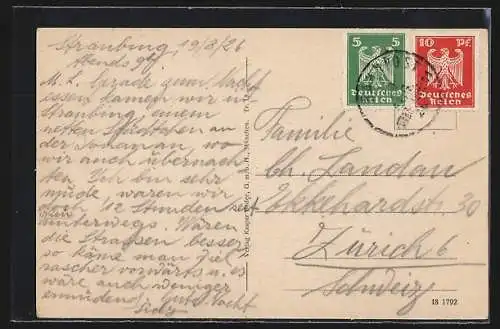 Straubing, 19/8/26
Abends 9h
M. L. Gerade zum Nacht
essen kamen wir in
Straubing, einem
netten Städtchen an
der Donau an wo
wir auch übernach
ten. Ich bin sehr
müde waren wir
doch 12 Stunden seit
unterwegs. Wären
die Straßen besser
so käme man viel
rascher vorwärts u. es
wäre auch weniger
ermüdend. Gute Nacht
5
5
Deutsches
Reich
10 Pf.
Deutsches
Reich
Familie
Ch. Landau
Ekkehardstr 30
Zürich 6
Schweiz
Verlag Kaspar G. m. b. H., München.
18 1792